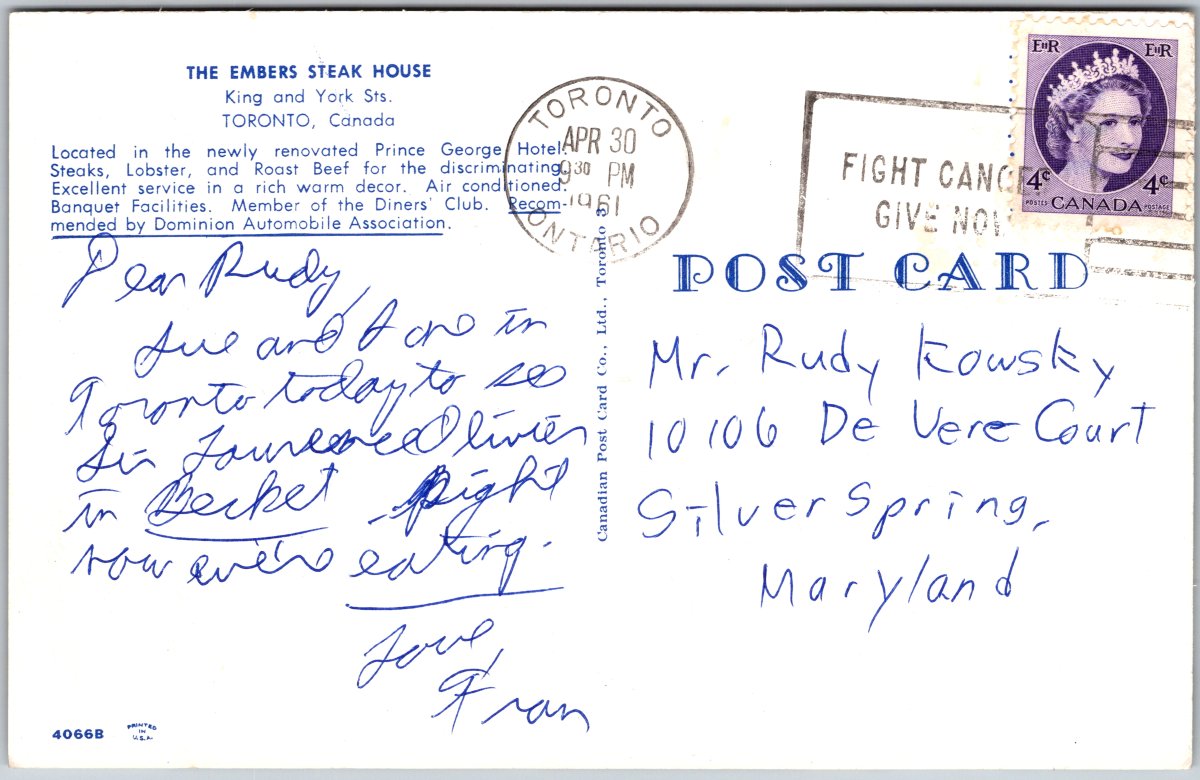 THE EMBERS STEAK HOUSE
King and York Sts.
TORONTO, Canada
Located in the newly renovated Prince George Hotel.
Steaks, Lobster, and Roast Beef for the discriminating.
Excellent service in a rich warm decor. Air conditioned.
Banquet Facilities. Member of the Diners' Club. Recom-
mended by Dominion Automobile Association.
Dear Rudy,
Sue and I are in
Toronto today to see
Sir Lawrence Olivier
in Becket. Right
now we're eating.
Love,
Fran
4066B
PRINTED
IN
U.S.A.
Canadian Post Card Co., Ltd., Toronto 3
TORONTO
APR 30
9 30 PM
1961
ONTARIO
FIGHT CANC
GIVE NOW
EIIR
EIIR
4¢
4¢
POSTES CANADA POSTAGE
POST CARD
Mr. Rudy Kowsky
10106 De Vere Court
Silver Spring,
Maryland